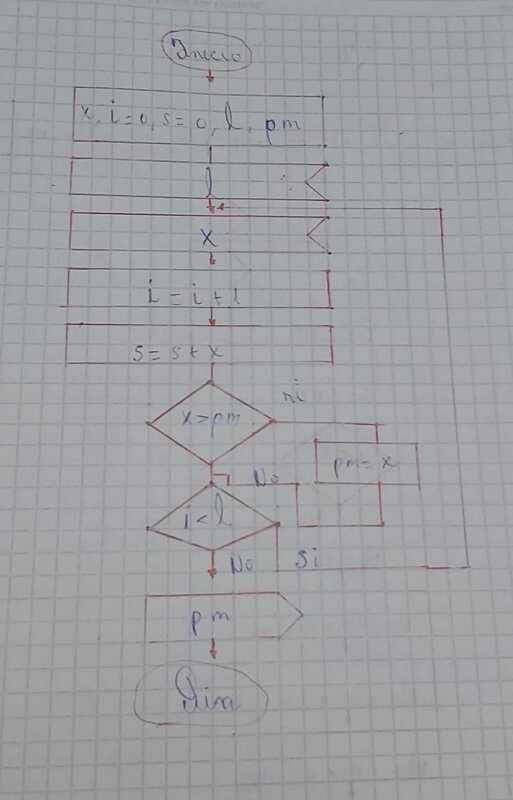 Inicio
x, i=0, s=0, l, pm
l
x
i = i + 1
s = s + x
x > pm
si
pm = x
No
i < l
No
Si
pm
Fin